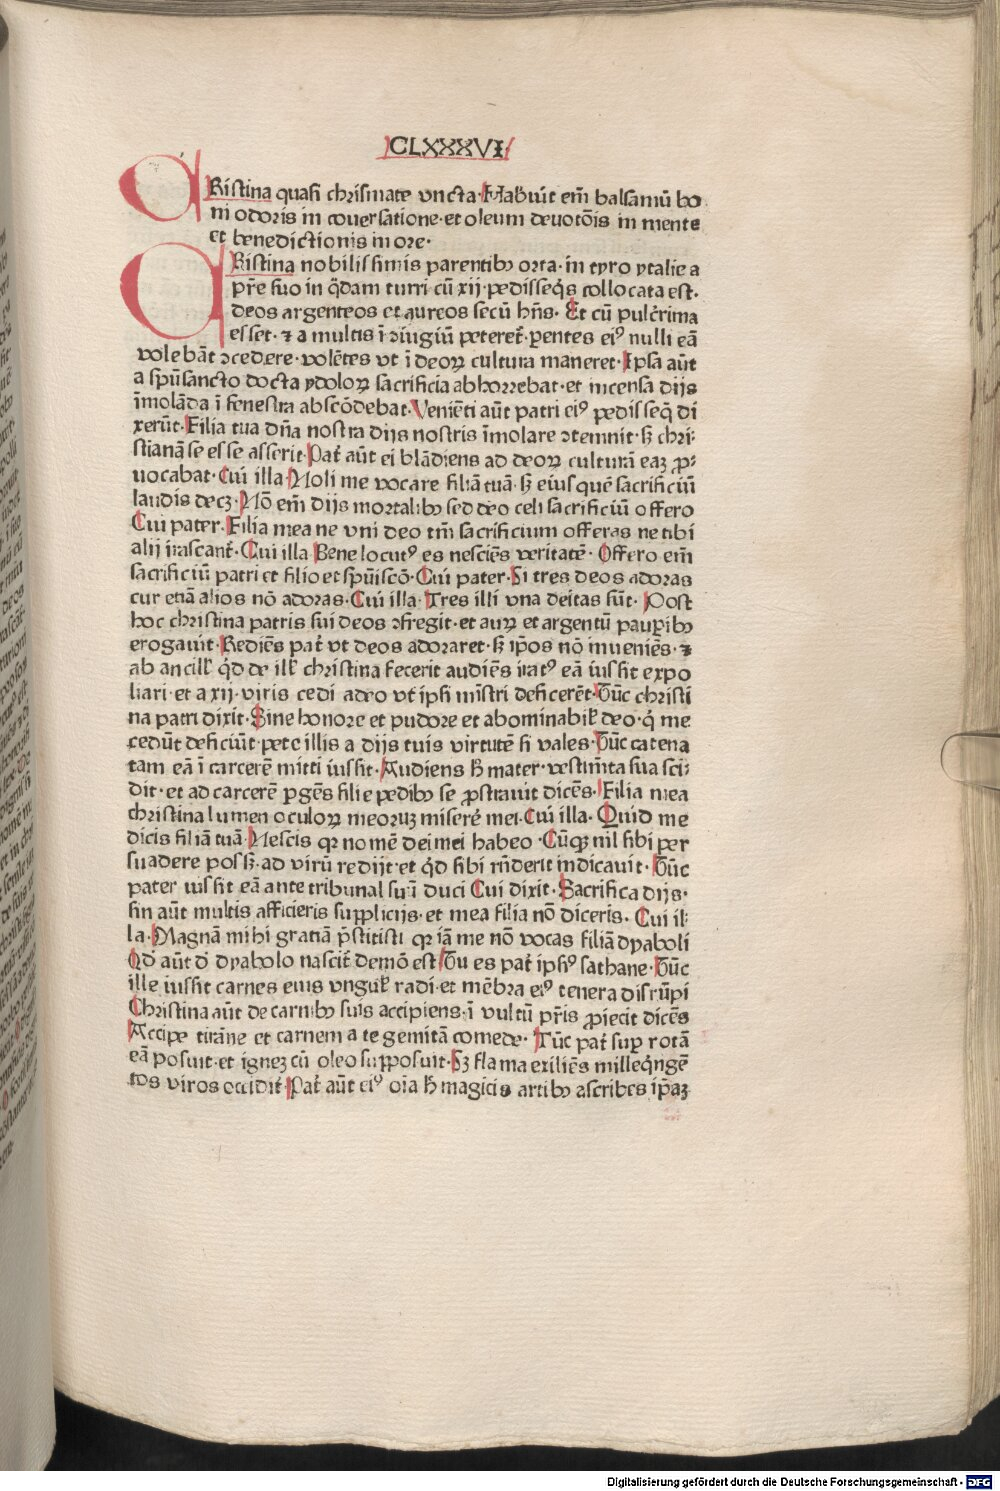 CLXXXVI
CRistina quasi chrismate vncta. Habuit em̄ balsamū bo
ni odoris in conuersatione. et oleum deuotōis in mente
et benedictionis in ore.
CRistina nobilissimis parentibꝫ orta. in tyro ytalie a
pr̄e suo in q̄dam turri cū xij. pedisseq̄s collocata est.
deos argenteos et aureos secū hn̄s. Et cū pulcērima
esset. ⁊ a multis ī ꝯiugiū peteret᷑. pentes eiꝰ nulli eā
volebāt ꝯcedere. volētes vt ī deoꝝ cultura maneret. Ipsa aūt
a spūsancto docta ydoloꝝ sacrificia abhorrebat. et incensa dijs
īmolāda ī fenestra abscōdebat. Veniēti aūt patri eiꝰ pedisseq̄ di
xerūt. Filia tua dn̄a nostra dijs nostris īmolare ꝯtemnit. sꝫ chri-
stianā se esse asserit. Pat᷑ aūt ei blādiens ad deoꝝ culturā eaꝫ ꝓ-
uocabat. Cui illa Noli me vocare filiā tuā. sꝫ eius quē sacrificiū
laudis decꝫ. Nō em̄ dijs mortalibꝫ sed deo celi sacrificiū offero
Cui pater. Filia mea ne vni deo tm̄ sacrificium offeras ne tibi
alij irascant᷑. Cui illa Bene locutꝰ es nesciēs veritatē. Offero em̄
sacrificiū patri et filio et spūiscō. Cui pater. Si tres deos adoras
cur etiā alios nō adoras. Cui illa. Tres illi vna deitas sūt. Post
hoc christina patris sui deos ꝯfregit. et auꝝ et argentū pauꝑibꝫ
erogauit. Rediēs pat᷑ vt deos adoraret. sꝫ ip̄os nō inueniēs. ⁊
ab ancill᷑ q̄d de ill᷑ christina fecerit audiēs iratꝰ eā iussit expo
liari. et a xij. viris cedi adeo vt ipsi mīstri deficerēt. Tūc christi
na patri dixit. Sine honore et pudore et abominabil᷑ deo. q̄ me
cedūt deficiūt. pete illis a dijs tuis virtutē si vales. Tūc catena
tam eā ī carcerē mitti iussit. Audiens h̄ mater. vestim̄ta sua sci-
dit. et ad carcerē ꝑgēs filie pedibꝫ se ꝓstrauit dicēs. Filia mea
christina lumen oculoꝝ meoruꝫ miserē mei. Cui illa. Quid me
dicis filiā tuā. Nescis qꝛ nomē dei mei habeo. Cūqꝫ nil sibi per
suadere possꝫ. ad virū redijt. et q̄d sibi rn̄derit indicauit. Tūc
pater iussit eā ante tribunal suū duci Cui dixit. Sacrifica dijs.
sin aūt multis afficieris supplicijs. et mea filia nō diceris. Cui il-
la. Magnā mihi gratiā p̄stitisti qꝛ iā me nō vocas filiā dyaboli
Qd̄ aūt d̄ dyabolo nascit᷑ demō est. Tu es pat᷑ ipsiꝰ sathane. Tūc
ille iussit carnes eius vngul᷑ radi. et mēbra eiꝰ tenera disrūpi
Christina aūt de carnibꝫ suis accipiens. ī vultū pr̄is ꝓiecit dicēs
Accipe tirāne et carnem a te genitā comede. Tūc pat᷑ suꝑ rotā
eā posuit. et igneꝫ cū oleo supposuit. Sꝫ flama exiliēs milleq̄ngē
tos viros occidit. Pat᷑ aūt eiꝰ oīa h̄ magicis artibꝫ ascribēs ip̄aꝫ
Digitalisierung gefördert durch die Deutsche Forschungsgemeinschaft - DFG